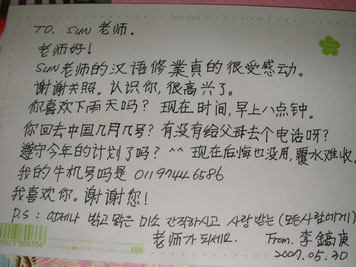 TO. SUN 老师.
老师好!
SUN老师的汉语修業真的很受感动.
谢谢关照. 认识你, 很高兴了.
你喜欢下雨天吗? 现在时间, 早上八点钟.
你回去中国几月几号? 有没有给父母去个电话呀?
遵守今年的计划了吗? ^^ 现在后悔也没用, 覆水难收.
我的手机号吗是 01199446586
我喜欢你. 谢谢您!
P.S : 언제나 밝고 맑은 미소 간직하시고 사랑받는 (모든사람에게)
老师가 되세요. From. 李鎬庚
2007.05.30
100